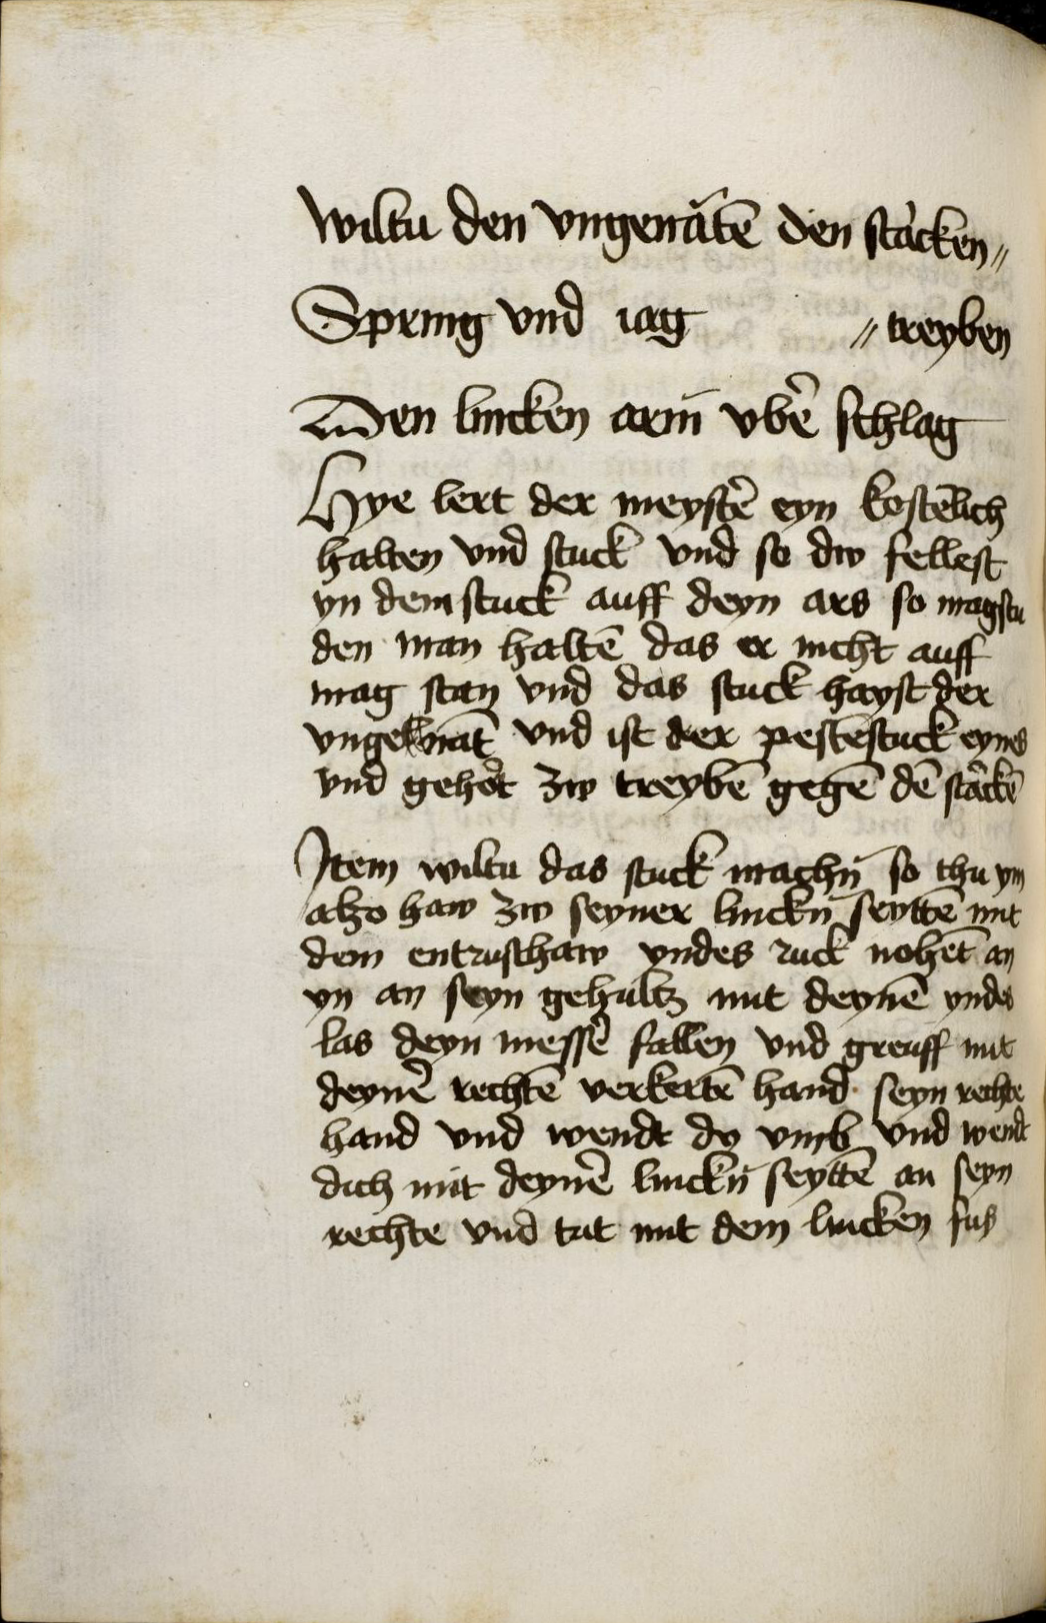 wiltu den vngenātē den stàcken〃
Spring vnd iag 〃treyben
Den lincken arm̄ vbẽ schlag
Hye lert der meystẽ eyn kostēlich
halten vnd stuck vnd so dw fellest
yn dem stuck auff deyn ars so magstu
den man haltē das er nicht auff
mag stan vnd das stuck hayst der
vnge nāt vnd ist der pestēstuck eynes
vnd gehòt zw treybē gegē dē stàckē
Item wiltu das stuck machn̄ so thu ym
alzo haw zw seyner linckn̄ seyttē mit
dem entrusthaw yndes ruck nohēt an
yn an seyn gehultz mit deynē yndes
las deyn messẽ fallen vnd greuff mit
deynẽ rechtē verkertē hand seyn rechte
hand vnd wendt do vmb vnd wendt
dich mit deynẽ linckn̄ seyttē an seyn
rechte vnd trit mit dem lincken fus